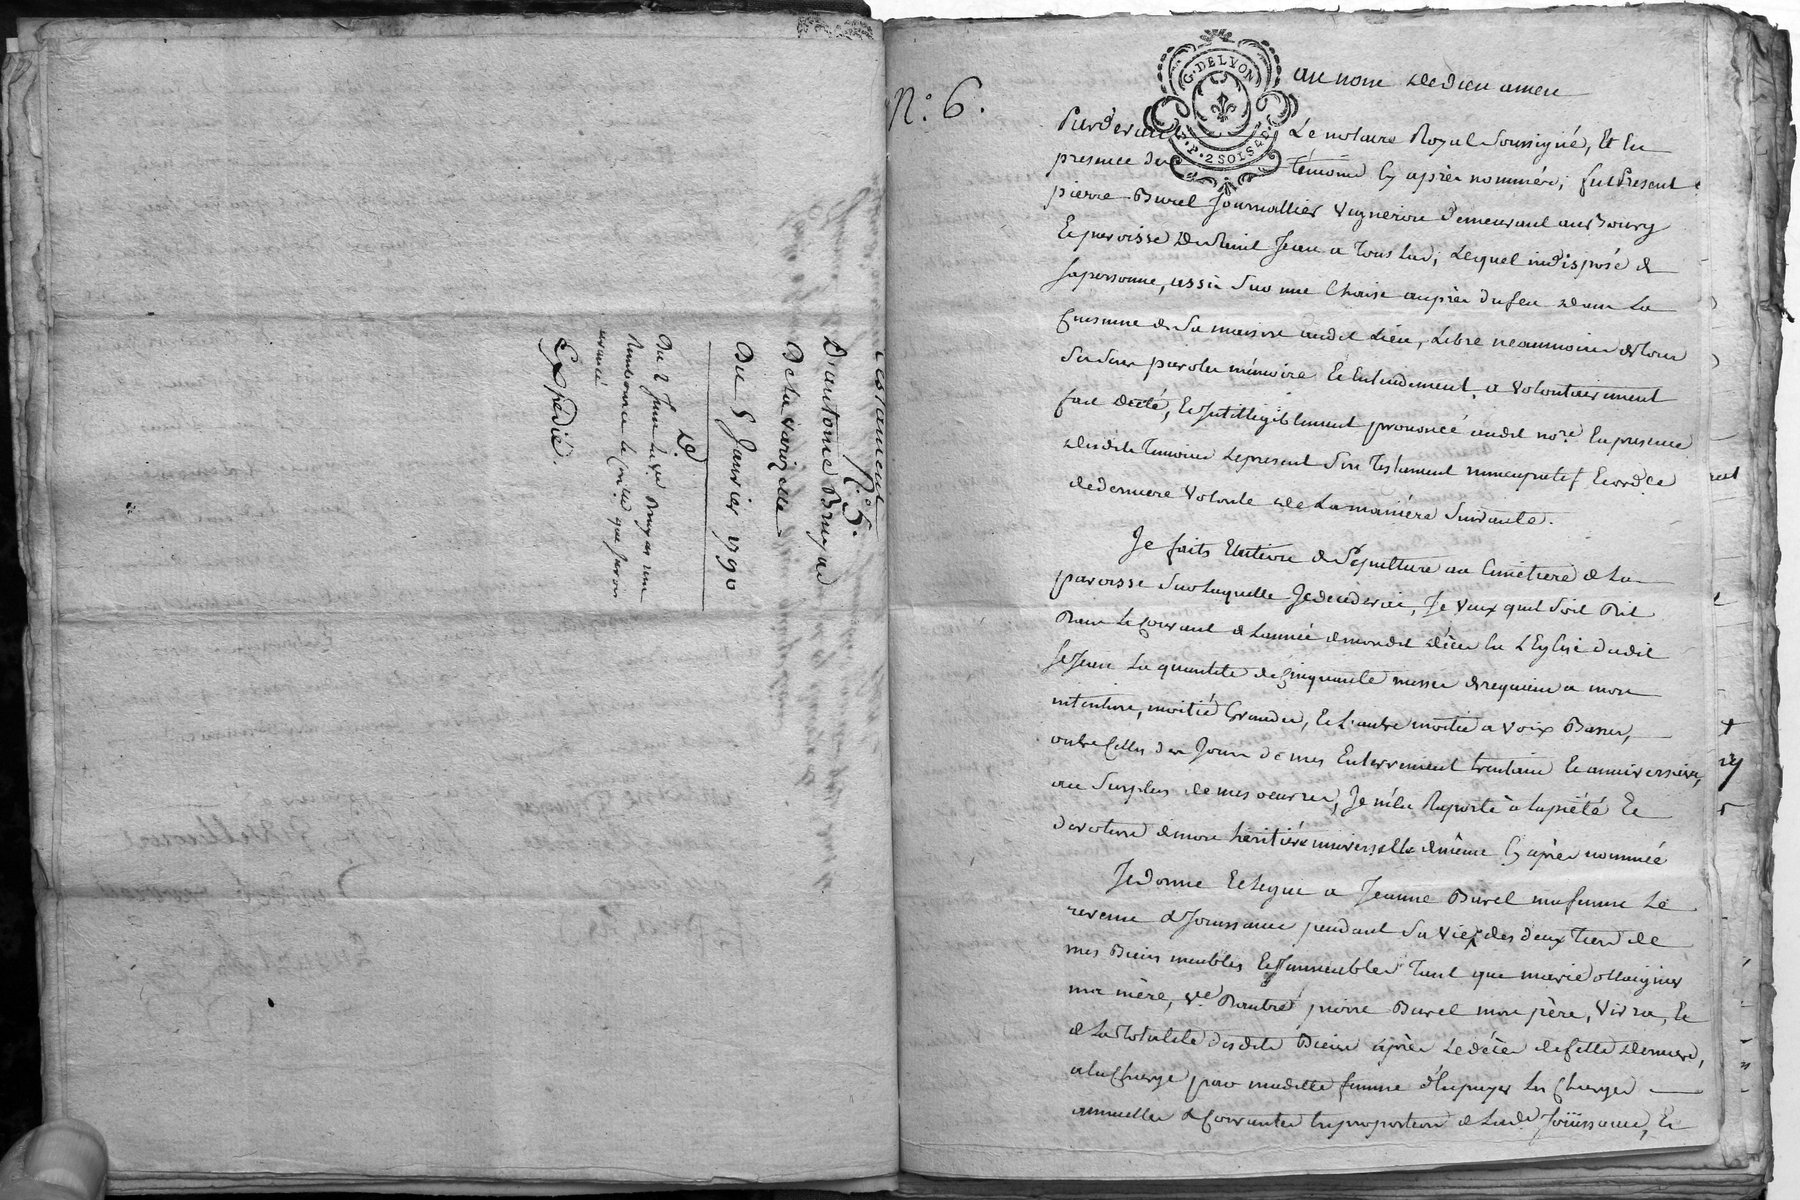 Testament
N.° 5.
D'antoine Bruyas
De la varizelle
Du 8 Janvier 1790
2d.
Du 2 Juin la ve. Bruyas
Expédié.
N.° 6.
G. DE LYON
P. P. 2 SOLS
au nom de dieu amen
Pardevant Le notaire Royal Soussigné, Et En
presence des témoins Cy après nommés, fut Present
pierre Burel Journallier Vigneron demeurant au Bourg
Et paroisse de Saint Jean a Touslas, Lequel indisposé de
sa personne, assis Sur une Chaise auprès du feu dans La
Cuisine de Sa maison audit Lieu, Libre néanmoins de tous
Ses Sens parolle mémoire Et Entendement, a Volontairement
fait dicté, Et Intelligiblement prononcé audit nore. En presence
desdits Temoins Le present Son Testament nuncupatif Et ordce
de derniere Volonté de La manière Suivante.
Je faits Election de Sépulture au Cimetiere de La
paroisse Sur laquelle Je decederai, Je Veux quil Soit Dit
Dans Le Courant de L'année de mondit décès En L'Eglise dudit
St Jean La quantité de Cinquante messes de requiem a mon
intention, moitié Grandes, Et L'autre moitié a Voix Basses,
outre Celles des Jours de mes Enterrement trentaine Et anniversaire,
au Surplus de mes oeuvres, Je m'en Raporte à la piété Et
devotion de mon héritière universelle de même Cy après nommée
Je donne Et legue a Jeanne Burel ma femme Le
revenu & Jouissance pendant Sa Vie des deux Tiers de
mes Biens meubles Et Immeubles Tant que marie ollaignier
ma mère, Ve. D'autre pierre Burel mon père, Vivra, Et
de La totalité desdits Biens après Le décès de Cette derniere,
a la Charge par madite femme d'En payer Les Charges
annuelles & Courantes En proportion de Lade. Joüissance, Et